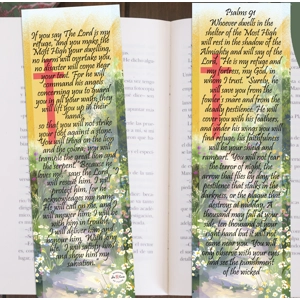 If you say The Lord is my
refuge, and you make the
Most High your dwelling,
no harm will overtake you,
no disaster will come near
your tent. For he will
command his angels
concerning you to guard
you in all your ways; they
will lift you up in their
hands,
so that you will not strike
your foot against a stone.
You will tread on the lion
and the cobra; you will
trample the great lion and
the serpent. Because he
loves me, says the Lord,
I will rescue him; I will
protect him, for he
acknowledges my name.
He will call on me, and I
will answer him; I will be
with him in trouble, I
will deliver him and
honour him. With long
life I will satisfy him
and show him my
salvation.
Psalms 91
Whoever dwells in the
shelter of the Most High
will rest in the shadow of the
Almighty and will say of the
Lord, He is my refuge and
fortress, my God, in
whom I trust. Surely, he
will save you from the
fowler's snare and from the
deadly pestilence. He will
cover you with his feathers,
and under his wings you will
find refuge; his faithfulness
will be your shield and
rampart. You will not fear
the terror of night, or the
arrow that flies by day, the
pestilence that stalks in the
darkness, or the plague that
destroys at midday. A
thousand may fall at your
side, ten thousand at your
right hand, but it will not
come near you. You will
only observe with your eyes
and see the punishment
of the wicked